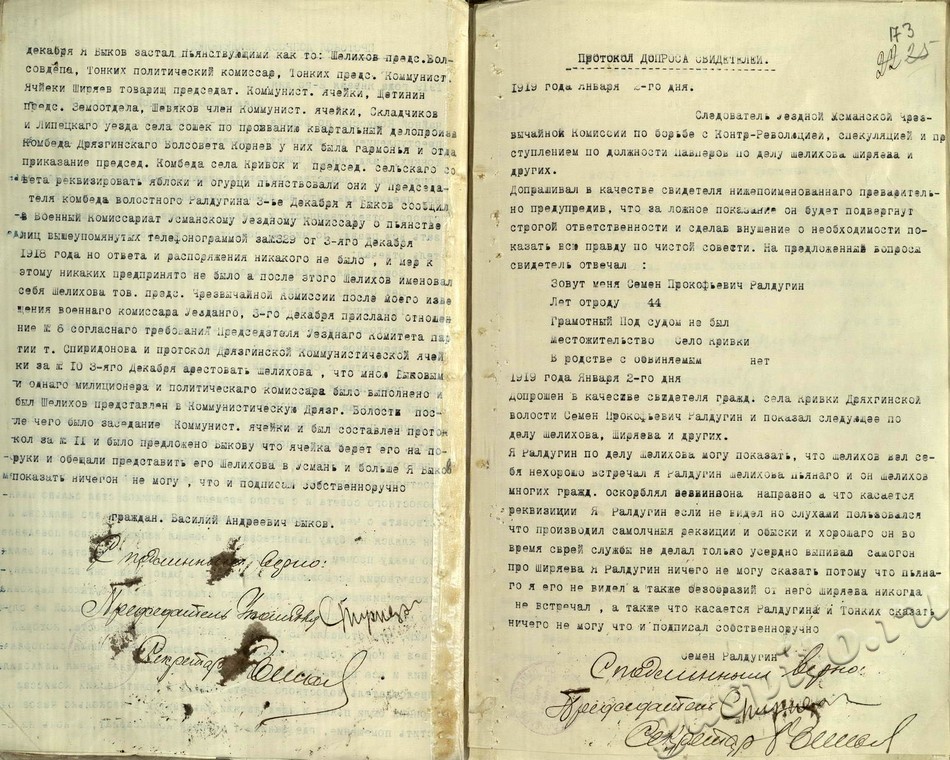 декабря Я Быков застал пьянствующими как то: Шелихов предс.Вол-
совдепа, Тонких политический комиссар, Тонких предс. Коммунист.
Ячйеки Ширяев товарищ председат. Коммунист. ячейки, Щетинин
предс. Земоотдела, Шевяков член Коммунист. ячейки, Складчиков
и Липецкаго уезда села сошек по прозванию квартальный делопроизв
Комбеда Дрязгинскаго Волсовета Корнев у них была гармонья и отда
приказание председ. Комбеда села Кривск и председ. сельскаго со
вета реквизировать яблоки и огурци пьянствовали они у председа-
теля комбеда волостного Ралдугина 3-ье Декабря я Быков сообщил
в Военный Комиссариат Усманскому Уездному Комиссару о пьянстве
лиц вышеупомянутых телефонограммой за№329 от 3-яго Декабря
1918 года но ответа и распоряжения никакого не было , и мер к
этому никаких предпринято не было а после этого Шелихов именовал
себя Шелихова тов. предс. Чрезвычайной Комиссии после моего изве
щения военнаго комиссара Уезданго, 3-го Декабря прислано отношен
ние № 6 согласнаго требования Председателя Уезднаго Комитета пар
тии т. Спиридонова и протокол Дрязгинской Коммунистической ячей
ки за № 10 3-яго Декабря арестовать Шелихова , что мною Быковым
и однаго милиционера и политическаго комиссара было выполнено и
был Шелихов представлен в Коммунистическую Дрязг. Волости пос-
ле чего было заседание Коммунист. ячейки и был составлен проток
кол за № II и было предложено Быкову что ячейка берет его на по-
руки и обещали представить его Шелихова в Усмань и больше Я Быков
показать ничегон не могу , что и подписал собственноручно
граждан. Василий Андреевич Быков.
С подлинным верно:
Председатель
Секретарь
173
22 25
Протокол ДОПРОСА СВИДЕТЕЛЕЙ.
1919 года Января 2-го дня.
Следователь Уездной Усманской Чрез-
вычайной Комиссии по борьбе с Контр-Революцией, спекуляцией и пр
ступлением по должности Павперов по делу шелихова ширяева и
других.
Допрашивал в качестве свидетеля нижепоименованнаго превâритель-
но предупредив, что за ложное показание он будет подвергнут
строгой ответственности и сделав внушение о необходимости по-
казать всю правду по чистой совести. На предложенный вопросы
свидетель отвечал :
Зовут меня Семен Прокофьевич Ралдугин
Лет отроду 44
Грамотный Под судом не был
местожительство Село Кривки
В родстве с обвиняемым нет
1919 года Января 2-го дня
Допрошен в качесиве свидетеля гражд. села Кривки Дряхгинской
волости Семен Прокофьевич Ралдугин и показал следующее по
делу шелихова, Ширяева и других.
Я Ралдугин по делу шелихова могу показать, что шелихов вел се-
бя нехорошо встречал я Ралдугин шелихова пьянаго и он шелихов
многих гражд. оскорблял напразно а что касается
реквизиции Я Ралдугин если не видел но слухами пользовался
что производил самолчныя рекзиции и обыски и хорошаго он во
время сврей службы не делал только усердно выпивал самогон
про Ширяева Я Ралдугин ничего не могу сказать потому что пьяна-
го я его не видел а также безобразий от него Ширяева никогда
не встречал , а также что касается Ралдугина и Тонких сказать
ничего не могу что и подписал собственноручно
Семен Ралдугин
С подлинным верно:
Председатель
Секретар